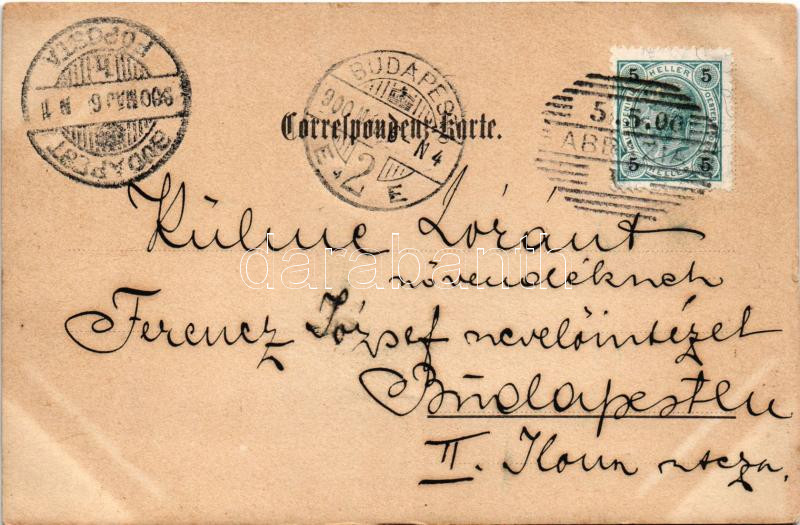 BUDAPEST
FŐPOSTA
900 MÁJ 6 N 1
BUDAPEST
900
N 4
2
5 HELLER 5
5 HELLER 5
5.5.00
ABBAZIA
Correspondenz-Karte.
Kühne Lóránt
növendéknek
Ferencz József nevelőintézet
Budapesten
II. Ilona utcza.
darabanth